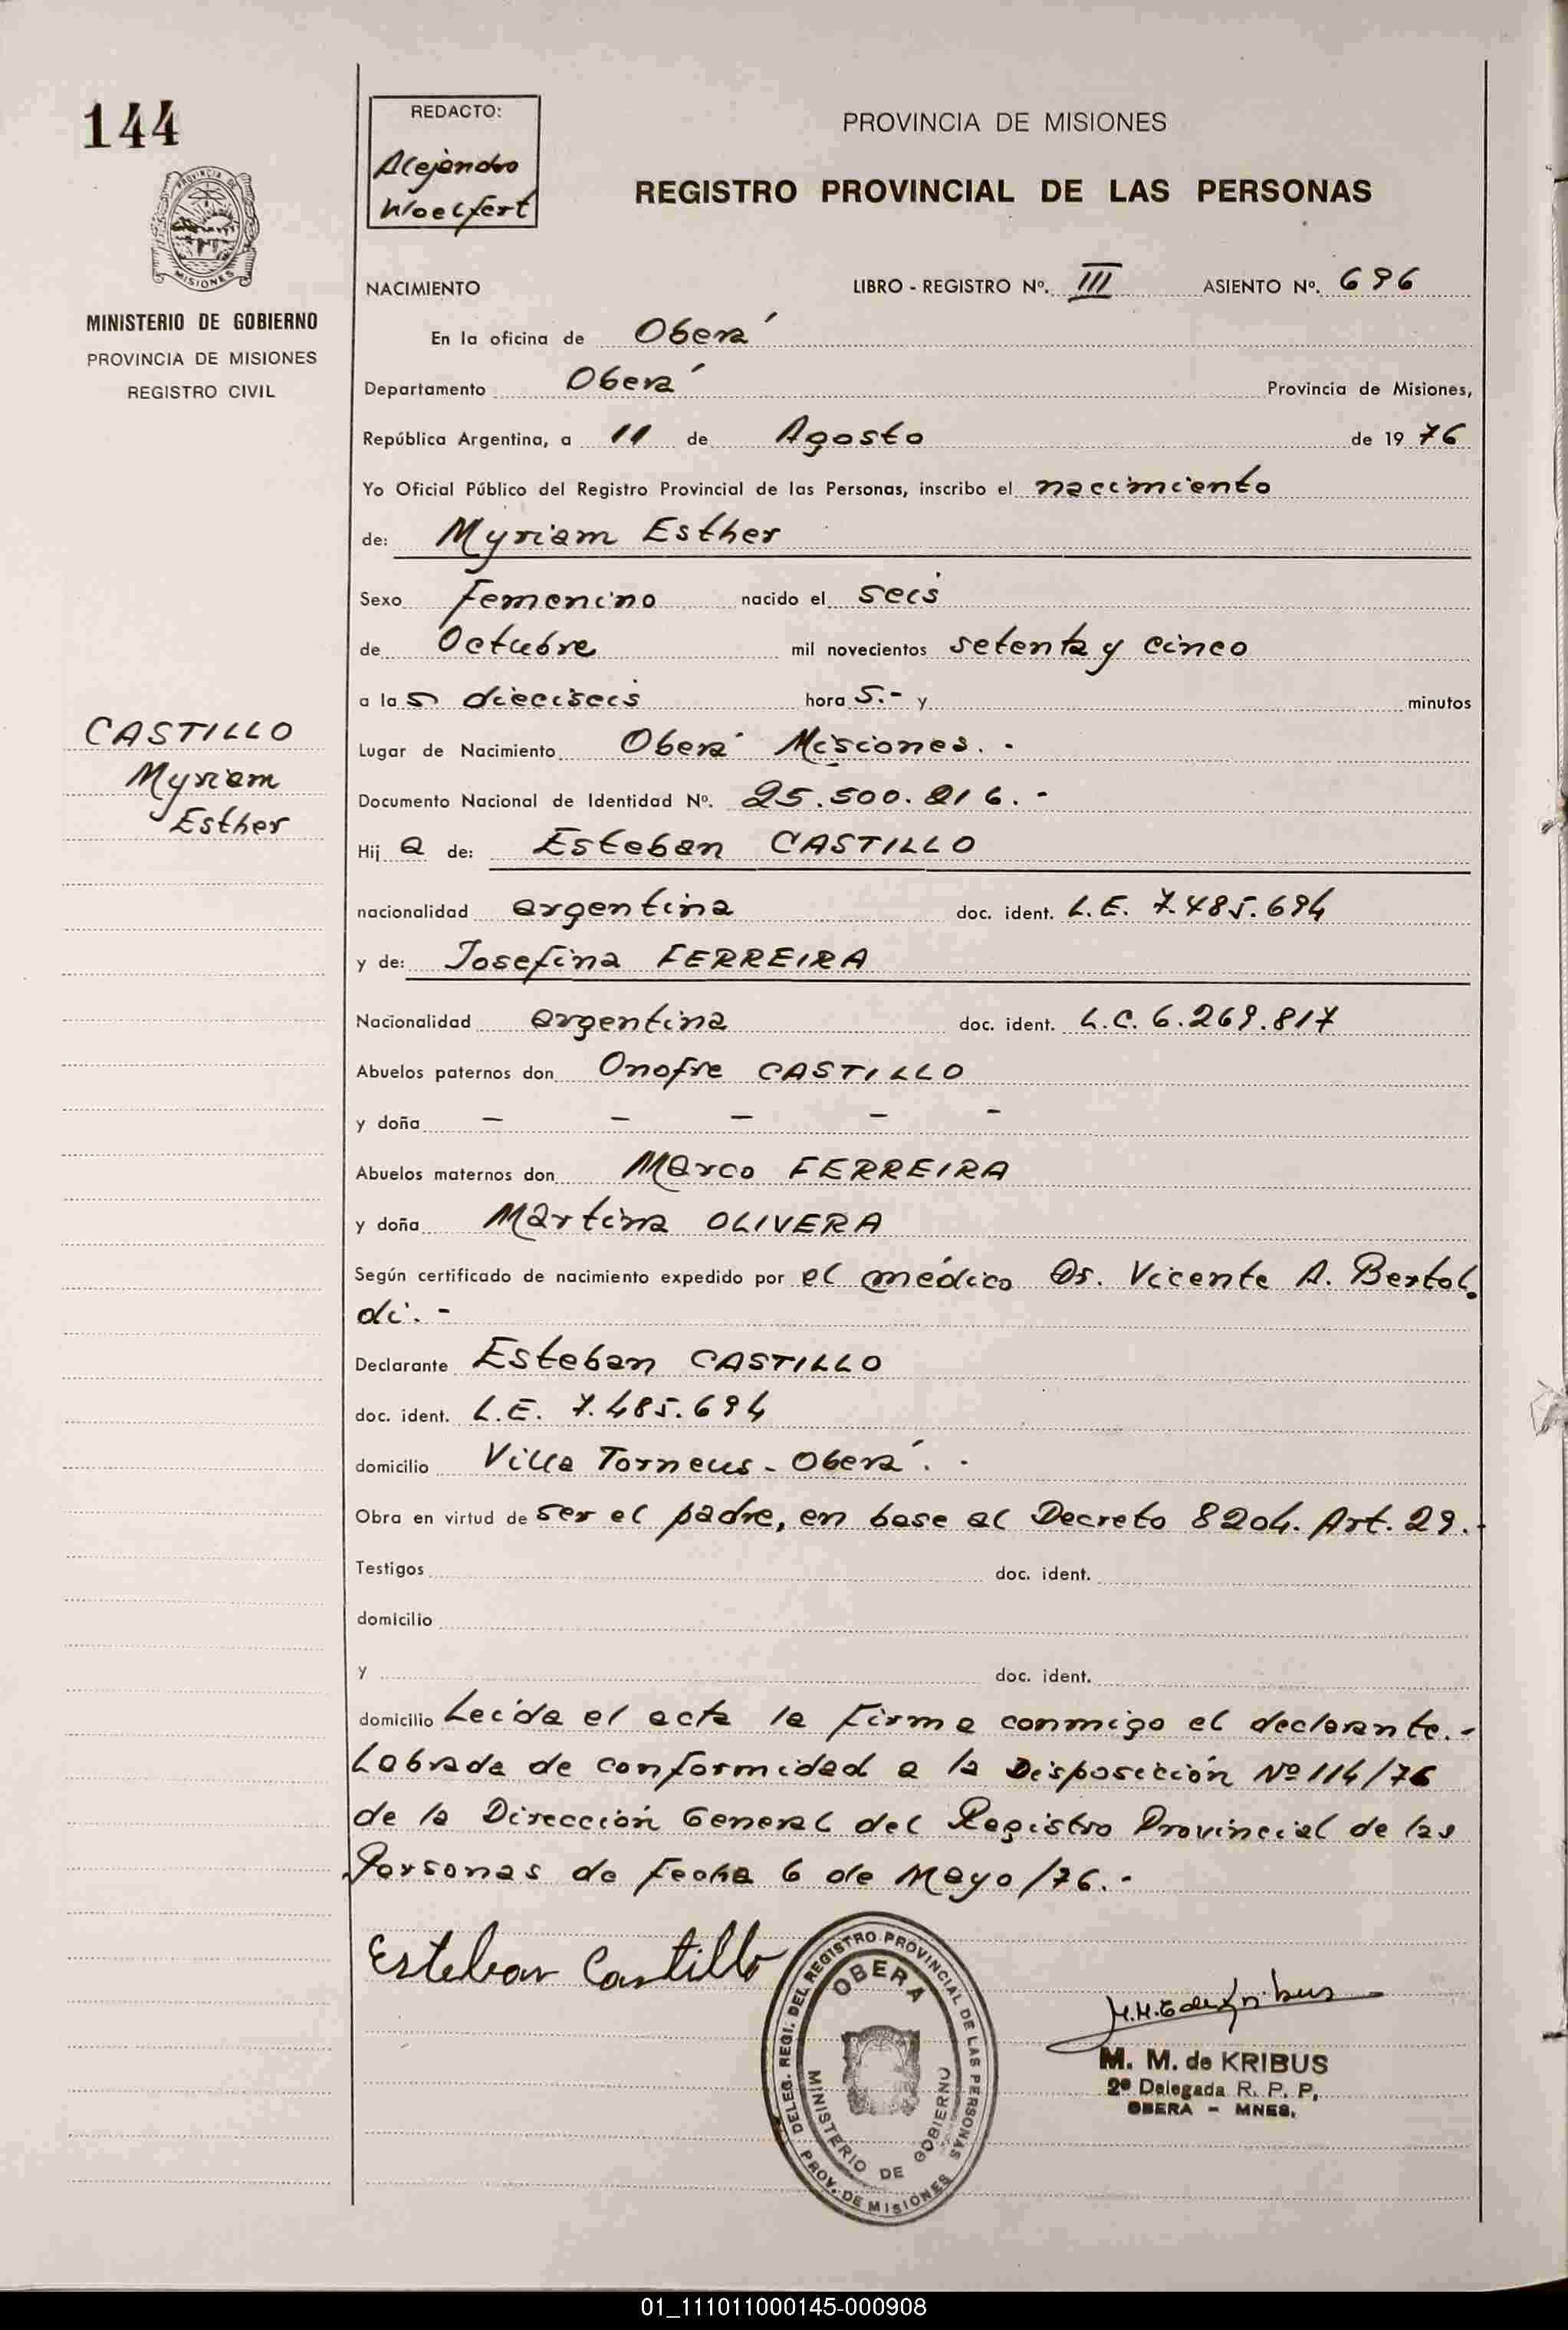 144
REDACTO:
Alejandro
Woelfert
PROVINCIA DE MISIONES
REGISTRO PROVINCIAL DE LAS PERSONAS
PROVINCIA DE
MISIONES
MINISTERIO DE GOBIERNO
PROVINCIA DE MISIONES
REGISTRO CIVIL
NACIMIENTO LIBRO - REGISTRO Nº. III ASIENTO Nº. 696
En la oficina de Oberá
Departamento Oberá Provincia de Misiones,
República Argentina, a 11 de Agosto de 1976
Yo Oficial Público del Registro Provincial de las Personas, inscribo el nacimiento
de: Myriam Esther
Sexo Femenino nacido el seis
de Octubre mil novecientos setenta y cinco
a las dieciseis horas.- y minutos
CASTILLO
Myriam
Esther
Lugar de Nacimiento Oberá Misiones.-
Documento Nacional de Identidad Nº. 25.500.216.-
Hija de: Esteban CASTILLO
nacionalidad argentina doc. ident. L.E. 7.485.694
y de: Josefina FERREIRA
Nacionalidad argentina doc. ident. L.C. 6.269.817
Abuelos paternos don Onofre CASTILLO
y doña - - - - -
Abuelos maternos don Marco FERREIRA
y doña Martina OLIVERA
Según certificado de nacimiento expedido por el médico Dr. Vicente A. Bertol
di.-
Declarante Esteban CASTILLO
doc. ident. L.E. 7.485.694
domicilio Villa Torneus - Oberá.-
Obra en virtud de ser el padre, en base al Decreto 8204. Art. 29.-
Testigos doc. ident.
domicilio
y doc. ident.
domicilio Leída el acta la firma conmigo el declarante.-
Labrada de conformidad a la Disposición Nº 114/76
de la Dirección General del Registro Provincial de las
Personas de fecha 6 de Mayo/76.-
Esteban Castillo
DELEG. REGI. DEL REGISTRO PROVINCIAL DE LAS PERSONAS
OBERA
MINISTERIO DE GOBIERNO
PROV. DE MISIONES
M.M.G de Kribus
M. M. de KRIBUS
2ª Delegada R. P. P.
OBERA - MNES.
01_111011000145-000908